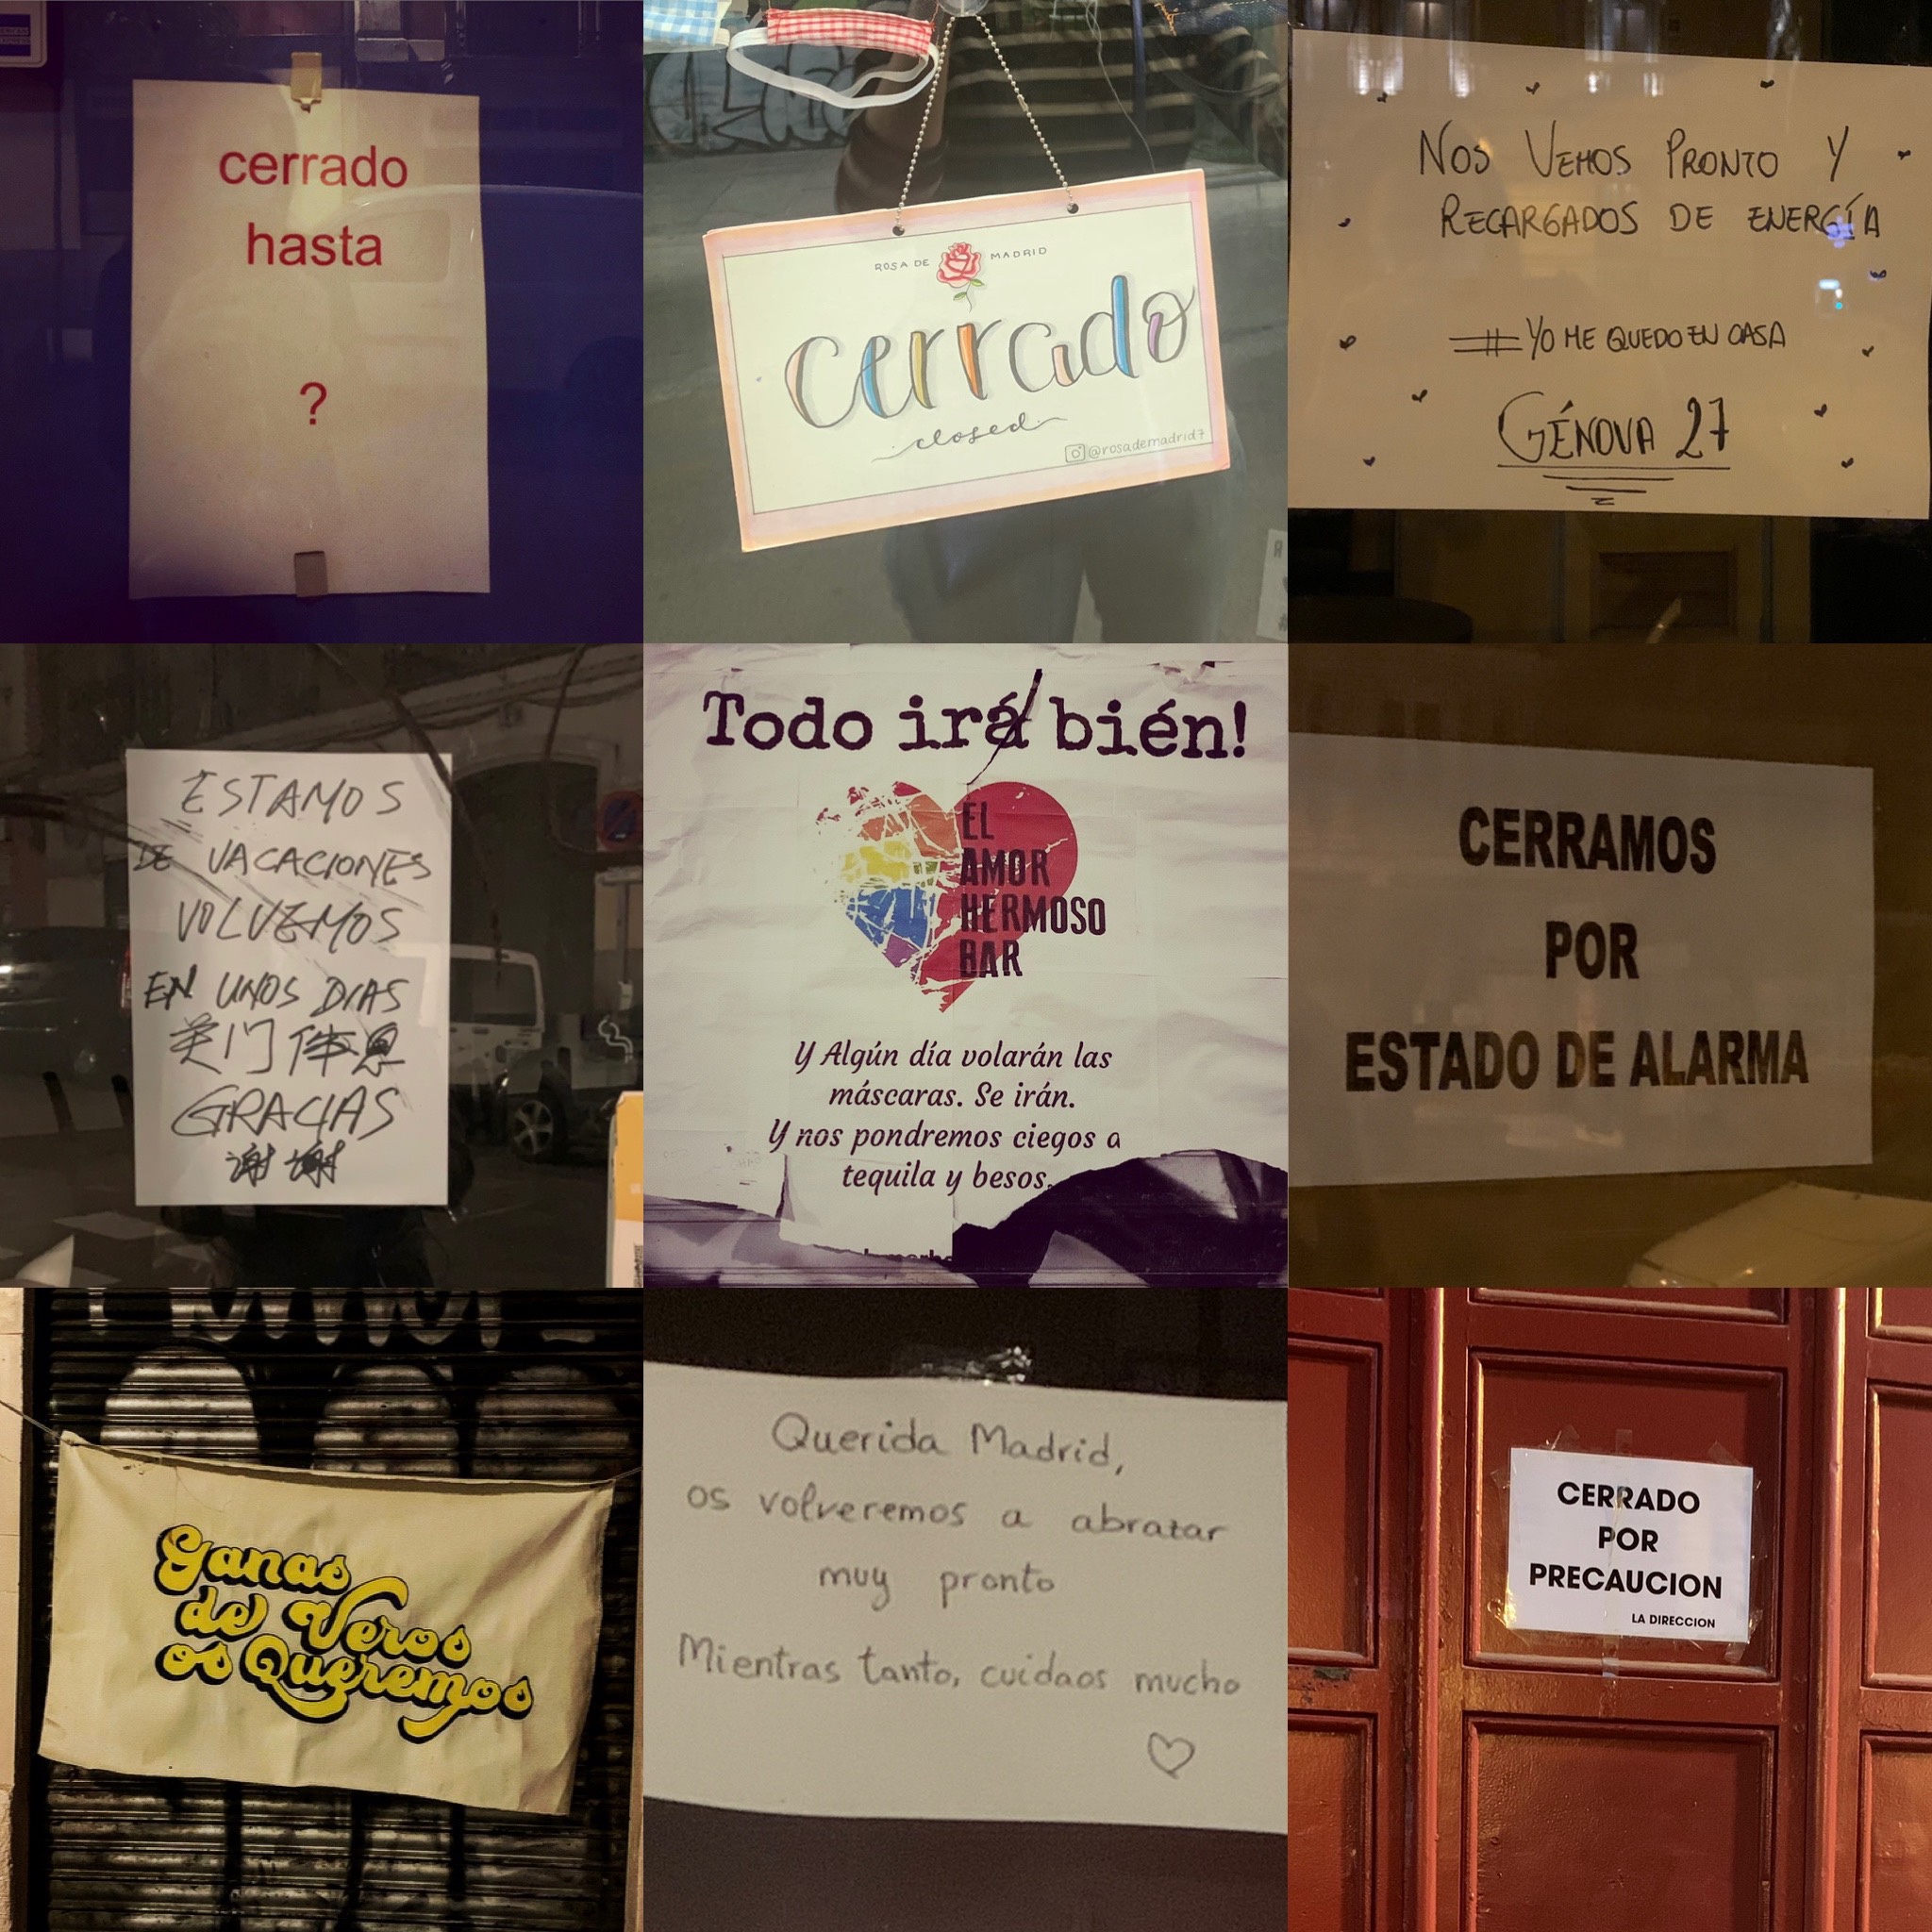 cerrado
hasta
?
ROSA DE MADRID
cerrado
closed
@rosademadrid7
NOS VEMOS PRONTO Y
RECARGADOS DE ENERGÍA
#YO ME QUEDO EN CASA
GÉNOVA 27
ESTAMOS
DE VACACIONES
VOLVEMOS
EN UNOS DIAS
GRACIAS
谢谢
Todo irá bién!
EL
AMOR
HERMOSO
BAR
Y Algún día volarán las
máscaras. Se irán.
Y nos pondremos ciegos a
tequila y besos.
CERRAMOS
POR
ESTADO DE ALARMA
Ganas
de Veros
os Queremos
Querida Madrid,
os volveremos a abrazar
muy pronto
Mientras tanto, cuidaos mucho
CERRADO
POR
PRECAUCION
LA DIRECCION